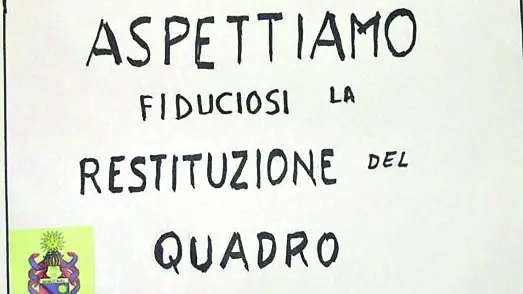 ASPETTIAMO
FIDUCIOSI LA
RESTITUZIONE DEL
QUADRO